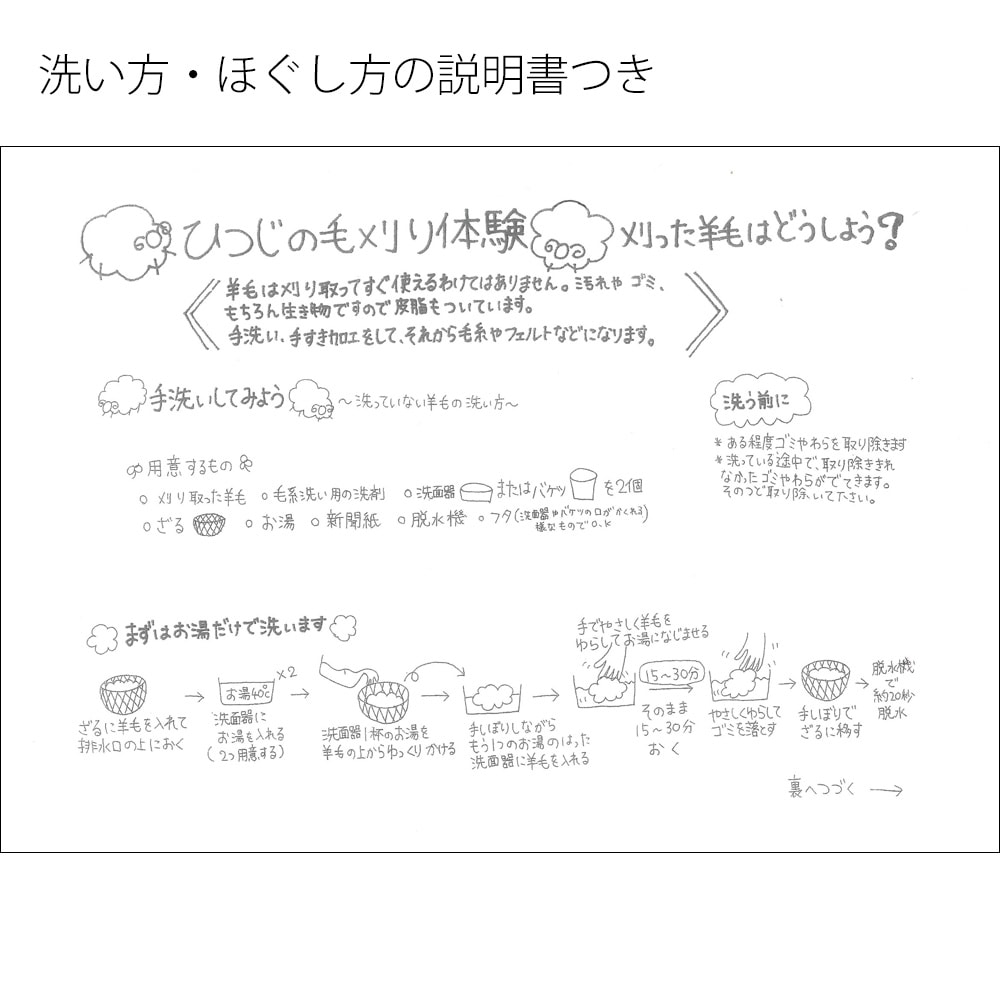 洗い方・ほぐし方の説明書つき
ひつじの毛刈り体験 刈った羊毛はどうしよう?
羊毛は刈り取ってすぐ使えるわけではありません。汚れや ゴミ、
もちろん生き物ですので皮脂もついています。
手洗い、手すき加工をして、それから毛糸やフェルトなどになります。
手洗いしてみよう ～洗っていない羊毛の洗い方～
洗う前に
*ある程度ゴミやわらを取り除きます
*洗っている途中で、取り除ききれ
なかったゴミやわらがでてきます。
そのつど取り除いて下さい。
用意するもの
○ 刈り取った羊毛 ○ 毛糸洗い用の洗剤 ○ 洗面器 またはバケツ を2個
○ ざる ○ お湯 ○ 新聞紙 ○ 脱水機 ○ フタ(洗面器やバケツの口がかくれる)
様なものでO.K
まずはお湯だけで洗います
ざるに羊毛を入れて
排水口の上におく
お湯40℃ ×2
洗面器に
お湯を入れる
(2つ用意する)
洗面器1杯のお湯を
羊毛の上からゆっくりかける
手しぼりしながら
もう1つのお湯のはった
洗面器に羊毛を入れる
手でやさしく羊毛を
ゆらしてお湯になじませる
15～30分
そのまま
15～30分
おく
やさしくゆらして
ゴミを落とす
手しぼりで
ざるに移す
脱水機
で
約20秒
脱水
裏へつづく →